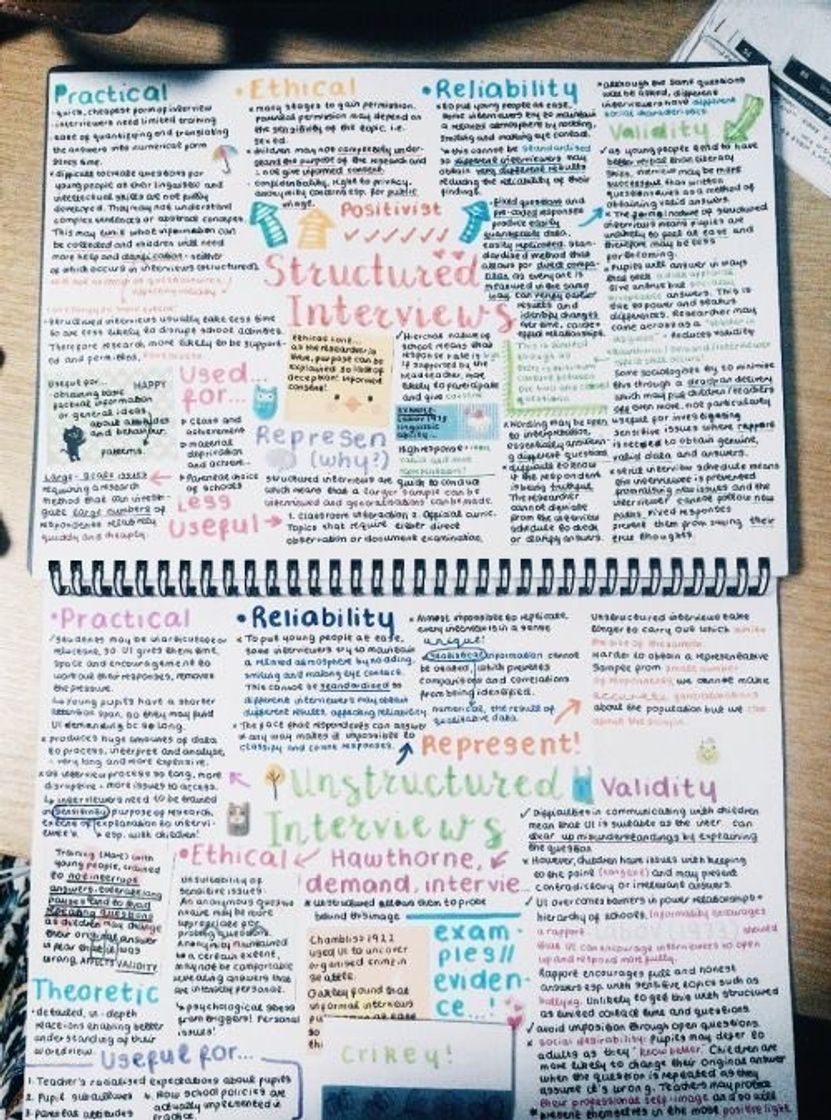 Practical
- quick, cheapest form of interview
- interviewers need limited training
- ease of quantifying and translating
the answers into numerical form
saves time.
* difficult to create questions for
young people as their linguistic and
intellectual skills are not fully
developed. They may not understand
complex sentences or abstract concepts.
This may limit what information can
be collected and children will need
more help and clarification - neither
of which occurs in interviews (structured).
- Structured interviews usually take less time
so are less likely to disrupt school activities.
Therefore research more likely to be support-
ed and permitted.
• Ethical
* many stages to gain permission.
parental permission may depend on
the sensitivity of the topic, i.e.
sex ed.
* children may not completely under-
stand the purpose of the research and
∴ not give informed consent.
- confidentiality, right to privacy,
anonymity concerns esp. for public
image.
• Reliability
* to put young people at ease,
some interviewers try to maintain
a relaxed atmosphere by nodding,
smiling and making eye contact.
* this cannot be standardised
so different interviewers may
obtain very different results
reducing the reliability of their
findings.
✓ Fixed questions and
pre-coded responses
produce easily
quantifiable data.
easily replicated. Stan-
dardised method that
allows for direct compa-
as everyone is
measured in the same
way. Can verify earlier
results and
identify changes
over time, cause +
effect relationships.
* although the same questions
will be asked, different
interviewers have different
social characteristics.
Validity
✓ as young people tend to have
better verbal than literacy
skills, interviews may be more
successful than written
questionnaires as a method of
obtaining valid answers.
* The formal nature of structured
interviews means pupils are
unlikely to feel at ease and
therefore may be less
forthcoming.
* Pupils will answer in ways
that seek
give
answers. This is
due to power and status
differences. Researcher may
come across as a
- Reduces validity
Some sociologists try to minimise
this through a deadpan delivery
which may put children/teachers
off even more, not particularly
useful for investigating
sensitive issues where rapport
is needed to obtain genuine,
valid data and answers.
* strict interview schedule means
the interviewer is prevented
from raising new issues and the
interviewer cannot follow new
paths. Fixed responses
prevent them from saying their
true thoughts.
Positivist
Structured
Interviews
Ethical cont...
as the researcher is
there, purpose can be
explained so lack of
deception! informed
consent!
✓ Hierarchical nature of
school means that
response rate is
if supported by the
head teacher, more
likely to participate
and give
EXAMPLE:
Labov 1973
linguistic
ability...
High response =
Useful for...
- obtaining basic
factual information
or general ideas
about attitudes
and behaviour.
HAPPY
patterns
Used
for...
▸ Class and
achievement
▸ material
deprivation
and achiev...
▸ Parental choice
of schools
Represen
(why?)
Structured interviews are quick to conduct
which means that a larger sample can be
interviewed and generalisations can be made.
Less
Useful →
1. classroom interaction
Topics that require either direct
observation or document examination.
Large-scale issues
requiring a research
method that can investi-
gate large numbers of
respondents relatively
quickly and cheaply.
* Wording may be open
to interpretation,
essentially answerin
g different questions.
* difficult to know
if the respondent
is being truthful.
The researcher
cannot deviate
from the interview
schedule to check
or clarify answers.
• Practical
✓ Students may be inarticulate or
reluctant, so UI gives them time,
space and encouragement to
work out their responses, removes
the pressure.
↳ young pupils have a shorter
attention span, so they may find
UI demanding bc so long.
* produces huge amounts of data
to process, interpret and analyse,
- very long and more expensive.
* as interview process so long, more
disruptive - more issues to access.
↳ interviewers need to be trained
in sensitivity, purpose of research,
extent of explanation to intervi-
ewees. ↳ esp. with children!
Training (more) with
young people, trained
to not interrupt
answers, tolerate long
pauses and to avoid
repeating questions
as children may change
their original answer
in fear that it was
wrong. AFFECTS VALIDITY
• Reliability
* To put young people at ease,
some interviewers try to maintain
a relaxed atmosphere by nodding,
smiling and making eye contact.
This cannot be standardised so
different interviewers may obtain
different results, affecting reliability
* The fact that respondents can answer
in any way makes it impossible to
classify and count responses.
* Almost impossible to replicate,
every interview is in a sense
unique!
* Statistical information cannot
be created, which prevents
comparisons and correlations
from being identified.
numerical, the result of
qualitative data.
Unstructured interviews take
longer to carry out which limits
the size of the sample.
Harder to obtain a representative
sample from small number
of respondents, we cannot make
accurate generalisations
about the population but we can
about the sample.
Represent!
Unstructured
Interviews
Validity
✓ Difficulties in communicating with children
mean that UI is suitable as the inter. can
clear up misunderstandings by explaining
the question
* However, children have issues with keeping
to the point (tangent) and may present
contradictory or irrelevant answers.
✓ UI overcomes barriers in power relationship +
hierarchy of schools. Informality encourages
a rapport.
that UI can encourage interviewees to open
up and respond more fully.
Rapport encourages full and honest
answers esp. with sensitive topics such as
bullying. Unlikely to get this with structured
as limited contact time and questions.
✓ avoid imposition through open questions.
* social desirability: Pupils may defer to
adults as they 'know better'. Children are
more likely to change their original answer
when the question is repeated as they
assume it's wrong. Teachers may protect
their professional self-image and so will
present themselves in the most positive light
• Ethical
Unsuitability of
sensitive issues:
An anonymous questio
nnaire may be more
appropriate for
probing questions.
Anonymity maintained
to a certain extent,
may not be comfortable
revealing answers that
are intensely personal.
↳ psychological stress
from triggers! Personal
issues!
Hawthorne,
demand, intervie...
* unstructured allows them to probe
behind this image
Chambliss 1922
used UI to uncover
organised crime in
Seattle.
Oakley found that
informal interviews
exam-
ples//
eviden-
ce...!
Crikey!
Theoretic
- detailed, in-depth
reactions enabling better
understanding of their
worldview.
Useful for...
1. Teacher's racialised expectations about pupils
2. Pupil subcultures
3. Parental attitudes
4. How school policies are
actually implemented in
practice.